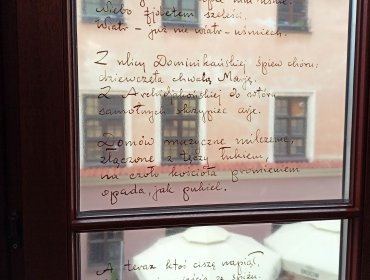 Niebo fioletem szeleści,
Wiatr – już nie wiatr – uśmiech.
Z ulicy Dominikańskiej śpiew chóru:
dziewczęta chwalą Maryję.
Z Archidiakońskiej do wtóru
samotnych skrzypiec arje.
Domów muzyczne milczenie,
złączone z tęczy łukiem,
na czoło kościoła promieniem
opada, jak pukiel.
A teraz ktoś ciszę napiął,